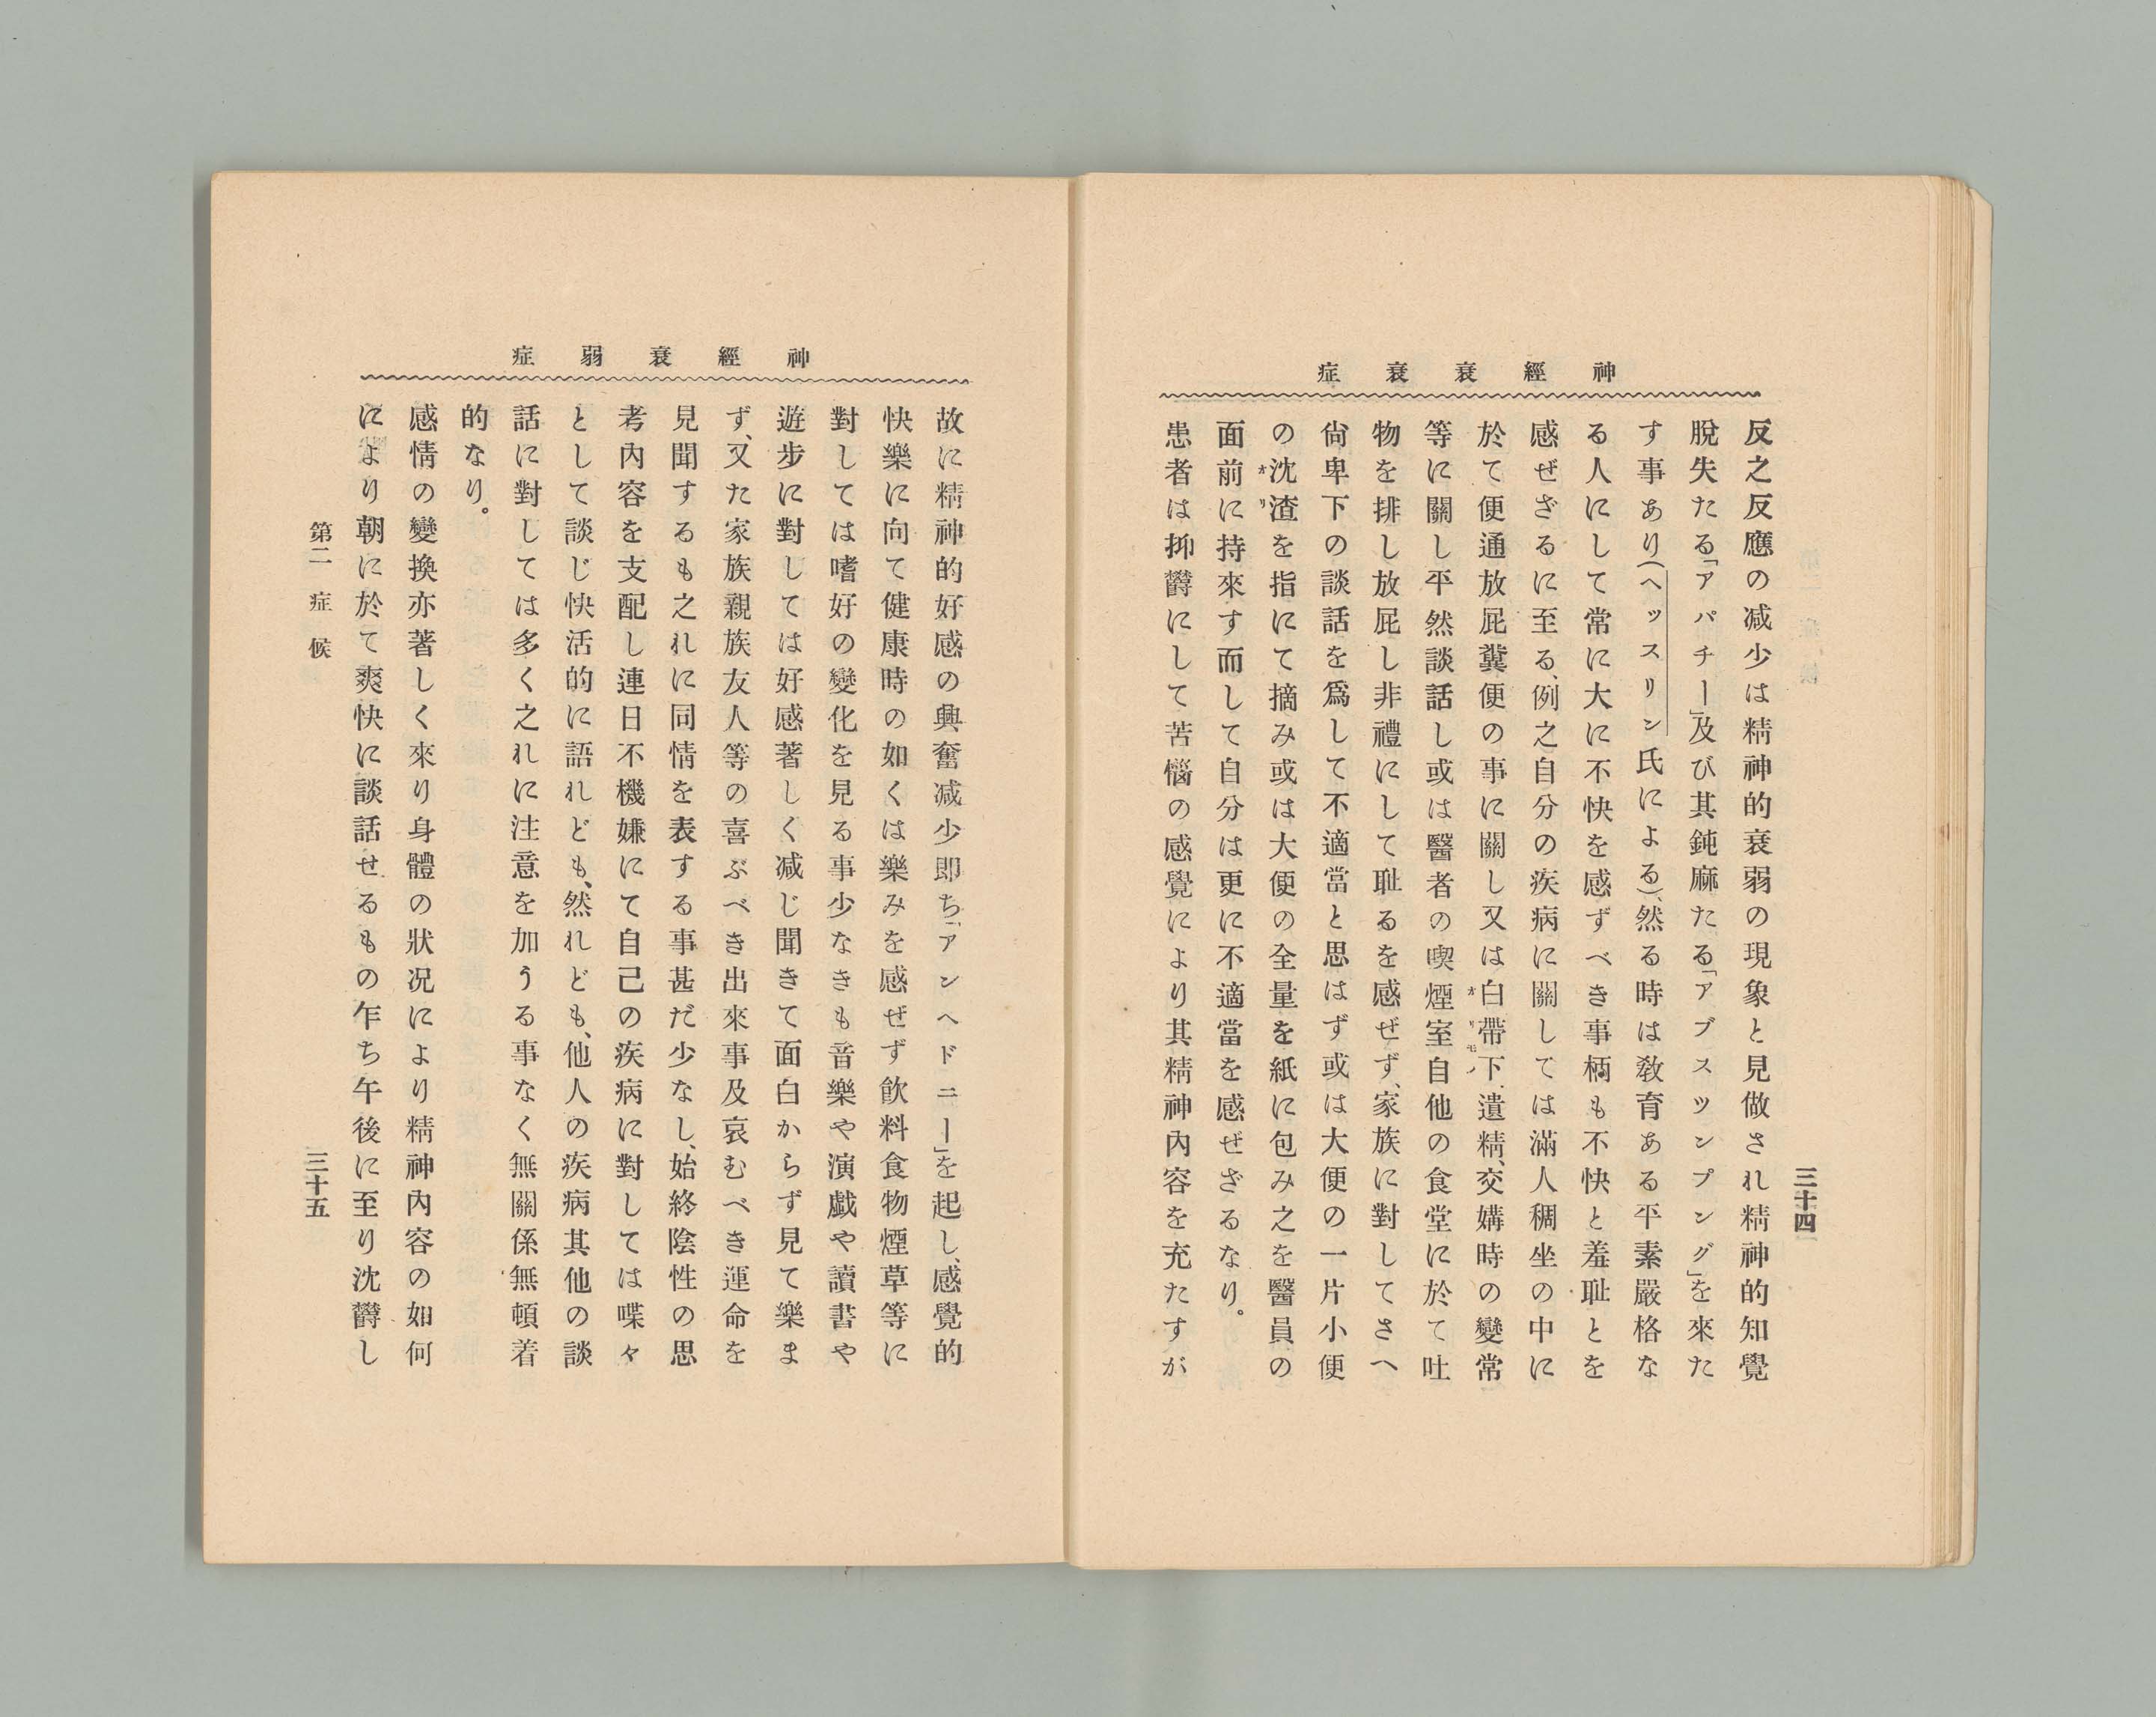 神經衰衰症
三十四
反之反應の減少は精神的衰弱の現象と見做され精神的知覺
脫失たる「アパチー」及び其鈍麻たる「アブスツンプング」を來た
す事あり(ヘッスリン氏による)、然る時は敎育ある平素嚴格な
る人にして常に大に不快を感ずべき事柄も不快と羞耻とを
感ぜざるに至る、例之自分の疾病に關しては滿人稠坐の中に
於て便通放屁糞便の事に關し又は白帶下、遺精、交媾時の變常
オリモノ
等に關し平然談話し或は醫者の喫煙室自他の食堂に於て吐
物を排し放屁し非禮にして耻るを感ぜず、家族に對してさへ
尙卑下の談話を爲して不適當と思はず或は大便の一片小便
の沈渣を指にて摘み或は大便の全量を紙に包み之を醫員の
オリ
面前に持來す而して自分は更に不適當を感ぜざるなり。
患者は抑欝にして苦惱の感覺により其精神內容を充たすが
神經衰弱症
故に精神的好感の興奮减少即ち「アンヘドニー」を起し、感覺的
快樂に向て健康時の如くは樂みを感ぜず飮料食物煙草等に
對しては嗜好の變化を見る事少なきも音樂や演戲や讀書や
遊步に對しては好感著しく减じ聞きて面白からず見て樂ま
ず、又た家族親族友人等の喜ぶべき出來事及哀むべき運命を
見聞するも之れに同情を表する事甚だ少なし、始終陰性の思
考內容を支配し連日不機嫌にて自己の疾病に對しては喋々
として談じ快活的に語れども、然れども、他人の疾病其他の談
話に對しては多く之れに注意を加うる事なく無關係無頓着
的なり。
感情の變換亦著しく來り身體の狀况により精神內容の如何
により朝に於て爽快に談話せるもの乍ち午後に至り沈欝し
第二　症候
三十五